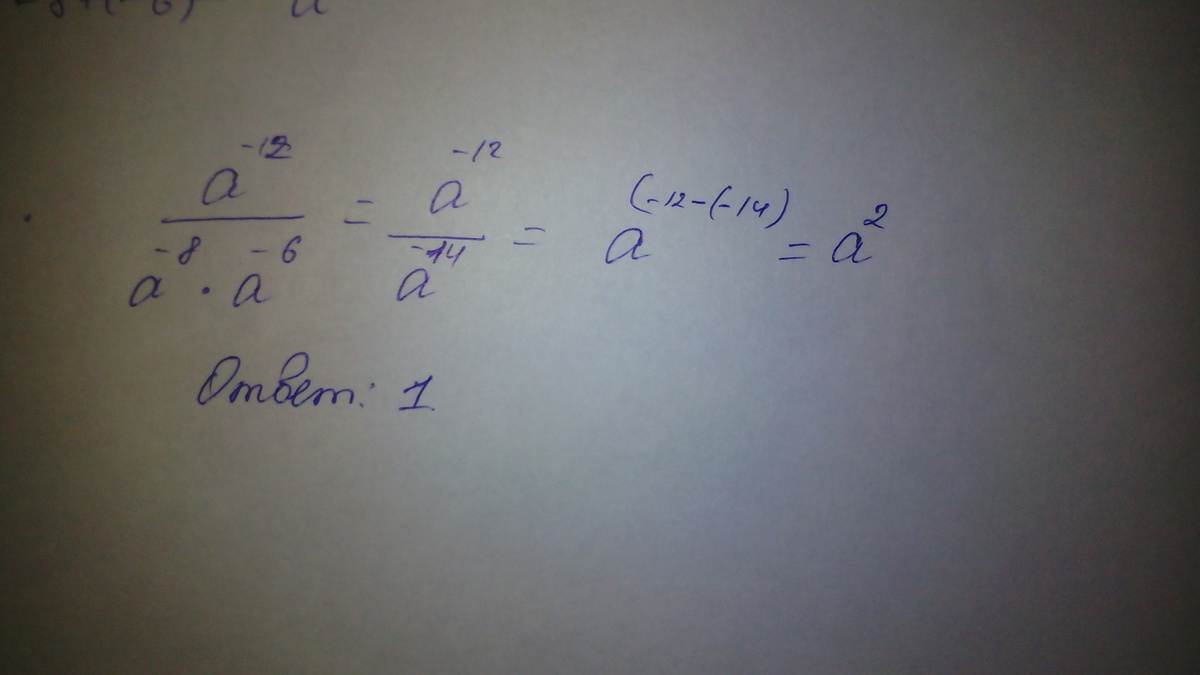 -8+(-6) a
a^-12 / (a^-8 · a^-6) = a^-12 / a^-14 = a^(-12-(-14)) = a^2
Ответ: 1